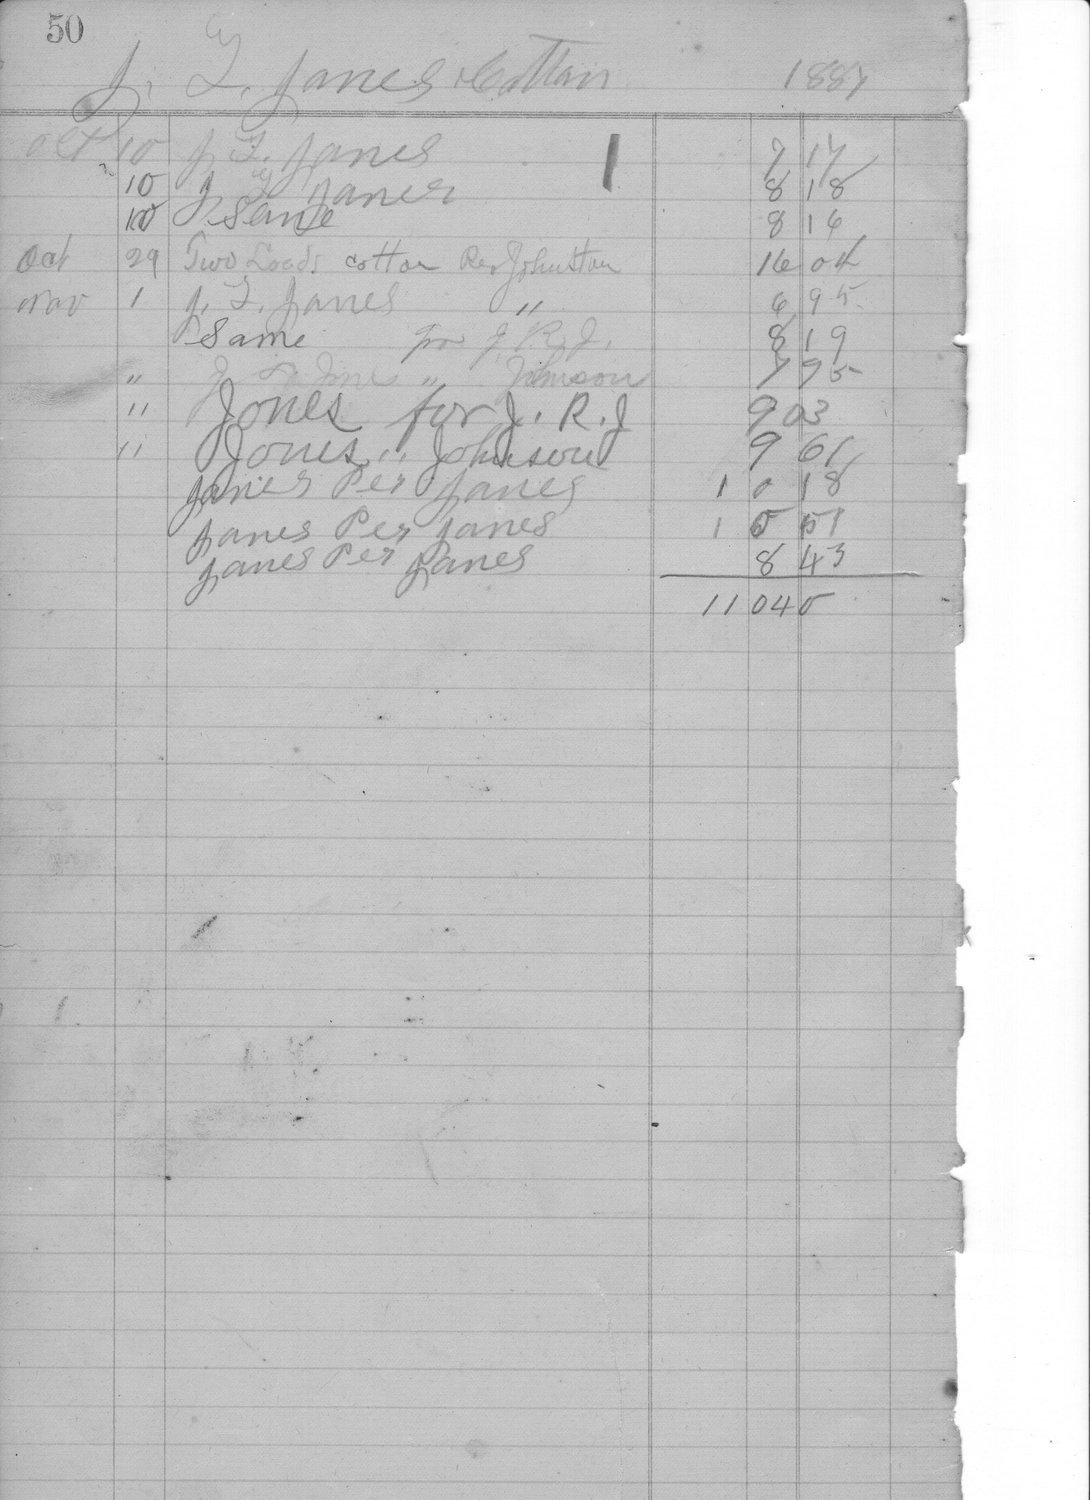 50
J. T. Janes Cotton 1887
Oct 10 J. T. Janes 7 17
10 J T Janes 8 18
10 Same 8 16
Oct 29 Two Loads cotton Per Johnston 16 04
Nov 1 J. T. Janes " 6 95
Same for J. R. J. 8 19
" J " Johnson 7 95
" Jones for J. R. J 9 03
" Jones " Johnson 9 61
Janes Per Janes 1 0 18
Janes Per Janes 1 0 51
Janes Per Janes 8 43
11 04 0